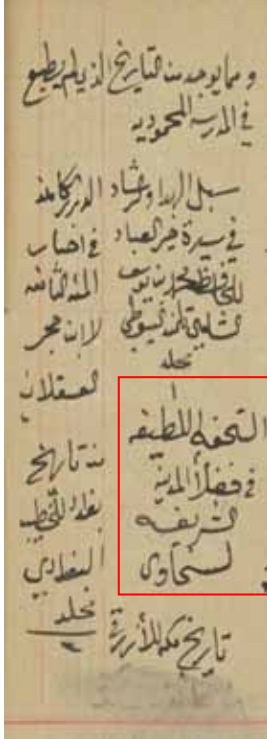 ومما يوجد من التاريخ الذي لم يطبع
في المدرسه المحموديه
سبل الهدا والرشاد
في سيرة خير العباد
للحافظ محمد ابن يوسف
الشامي تلميذ السيوطي
مجلد
١
التحفه اللطيفه
في فضل المدينة
الشريفه
لسخاوى
تاريخ مكه للأزرقي
الدرر الكامنه
في اعيان
المئه الثامنه
لابن حجر
العسقلاني
من تاريخ
بغداد للخطيب
البغدادي
مجلد
٢